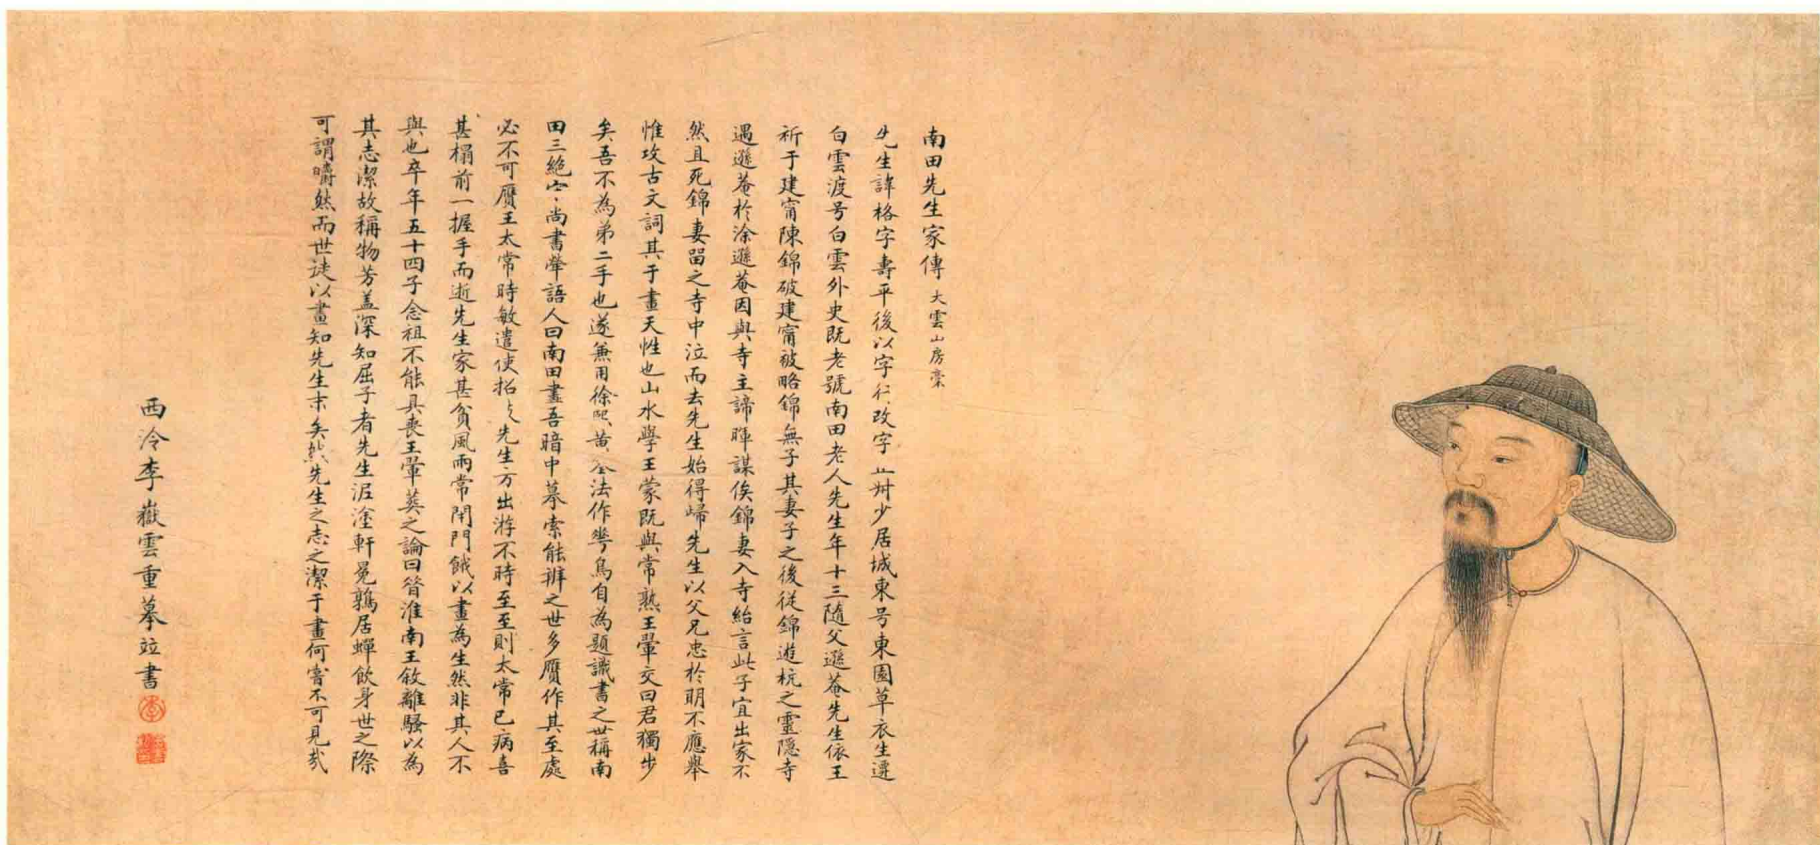 南田先生家傳 大雲山房稾
先生諱格字壽平後以字行改字正叔少居城東号東園草衣生遷
白雲渡号白雲外史既老號南田老人先生年十三隨父遜菴先生依王
祈于建甯陳錦破建甯被略錦無子其妻子之後從錦遊杭之靈隠寺
遇遜菴於涂遜菴因與寺主諦暉謀俟錦妻入寺紿言此子宜出家不
然且死錦妻畱之寺中泣而去先生始得歸先生以父兄忠於明不應舉
惟攻古文詞其于畫天性也山水學王蒙既與常熟王翬交曰君獨步
矣吾不為弟二手也遂兼用徐熙黄筌法作雩鳥自為題識書之世稱南
田三絶 尚書犖語人曰南田畫吾暗中摹索能辨之世多贋作其至處
必不可贋王太常時敏遣使招之先生方出游不時至至則太常已病喜
甚榻前一握手而逝先生家甚貧風雨常閉門餓以畫為生然非其人不
與也卒年五十四子念祖不能具喪王翬葬之論曰昝淮南王敘離騷以為
其志潔故稱物芳盖深知屈子者先生泥塗軒冕鶉居蟬飲身世之際
可謂皭然而世徒以畫知先生末矣然先生之志之潔于畫何甞不可見哉
西泠李嶽雲重摹竝書